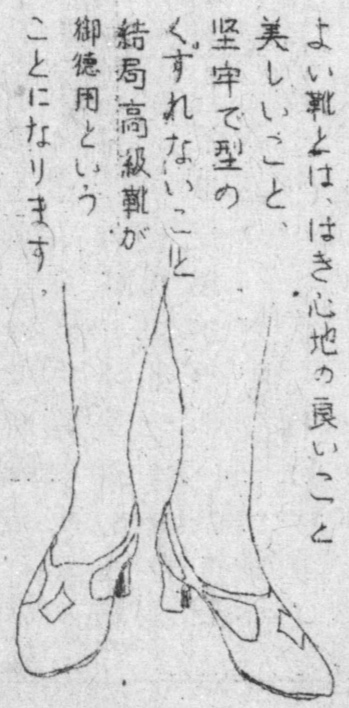 よい靴とは、はき心地の良いこと
美しいこと、
堅牢で型の
くずれないこと
結局高級靴が
御徳用という
ことになります。